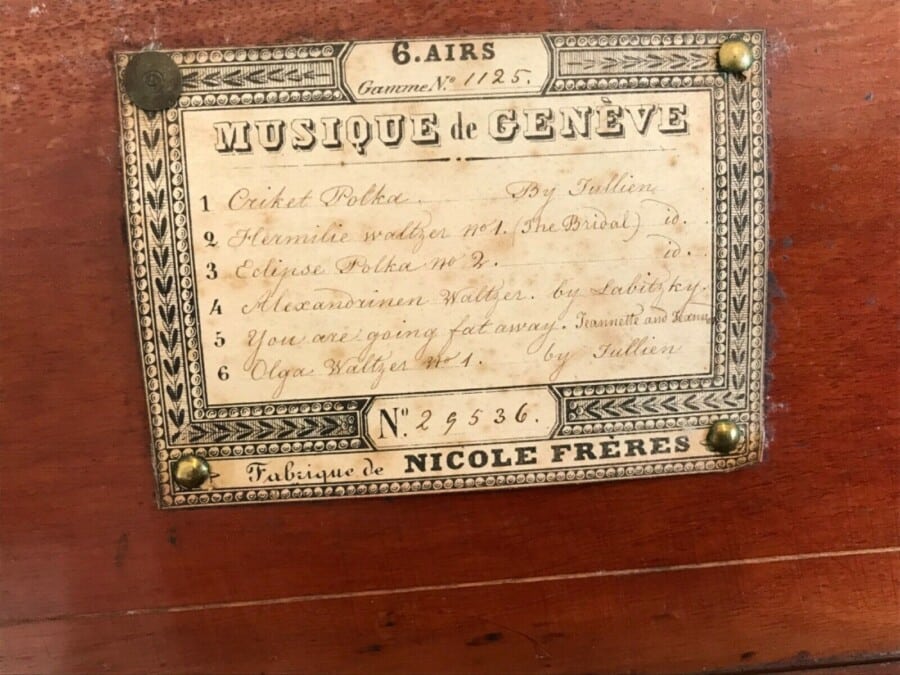 6. AIRS
Gamme No. 1125.
MUSIQUE de GENÈVE
1 Criket Polka. By Jullien
2 Hermilie waltzer No 1. (The Bridal) id.
3 Eclipse Polka No 2. id.
4 Alexandrinen Waltzer. by Labitzky.
5 You are going fat away. Jeannette and
6 Olga Waltzer No 1. by Jullien
No. 29536.
Fabrique de NICOLE FRÈRES